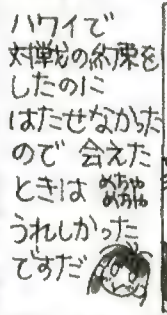 ハワイで
対戦の約束を
したのに
はたせなかった
ので 会えた
ときは めちゃめちゃ
うれしかった
ですだ